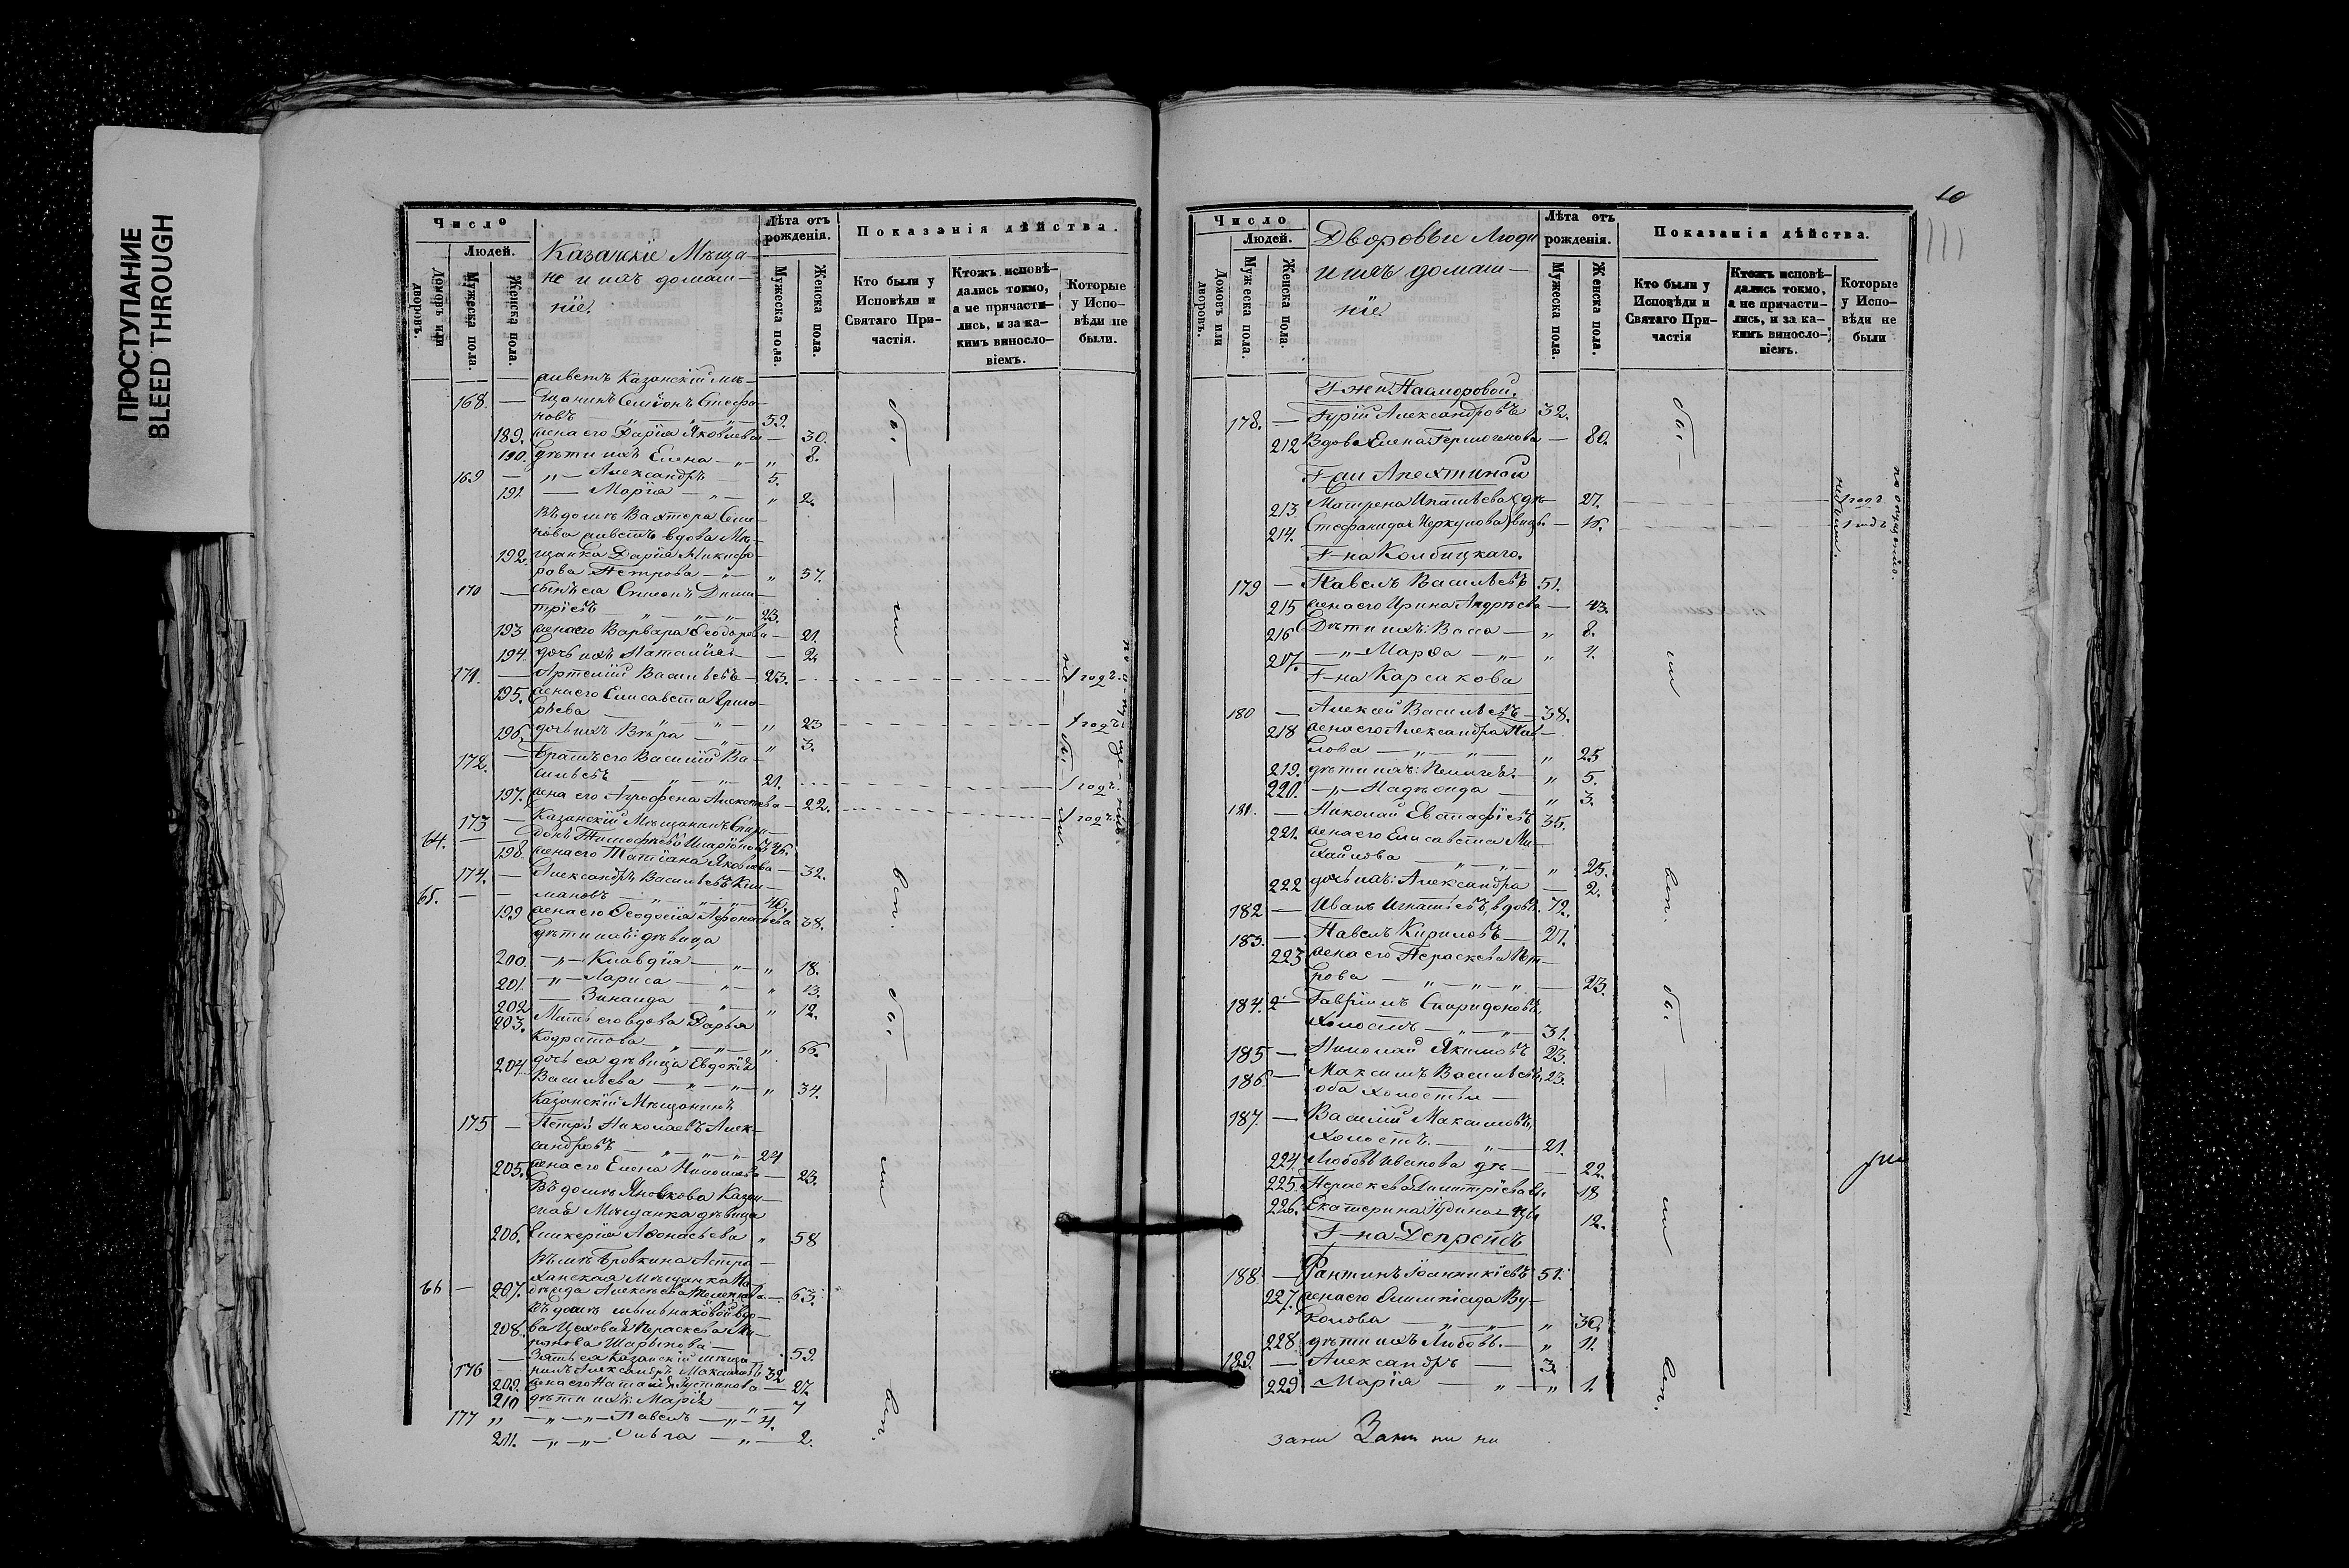 ПРОСТУПАНИЕ
BLEED THROUGH
Число
Людей.
Домовъ или дворовъ.
Мужеска пола.
Женска пола.
Казанскіе Мѣща-
не и ихъ домаш-
ніе.
Лѣта отъ рожденія.
Мужеска пола.
Женска пола.
Показанія дѣйства.
Кто были у Исповѣди и Святаго Причастія.
Ктожъ исповѣдались токмо, а не причастились, и за какимъ винословіемъ.
Которые у Исповѣди не были.
живетъ Казанскій Мѣ-
168. — щанинъ Семёонъ Стефа-
новъ — 59.
189. жена его Дарія Яковлева — 30.
190. дѣти ихъ Елена — „ — „ 8.
169 — „ — Александръ 5.
191. — Марія — „ — „ 2.
Въ домѣ Вахтера Семе-
нова живетъ вдова Мѣ-
192. щанка Дарія Никифо-
рова Петрова — „ — „ 57.
170 — сынъ ея Симеонъ Дими-
тріевъ — „ — „ — 23.
193 жена его Варвара Ѳеодорова — 21.
194. дочь ихъ Наталія — 2.
171. — Артемій Васильевъ — 23. 1 годъ.
195. жена его Елисавета Григо-
рьева — „ — „ 23 1 годъ
196. дочь ихъ Вѣра — „ — „ 3.
172. — братъ его Василій Ва-
сильевъ — „ — „ — 21. 1 годъ.
197. жена его Агрофена Алексѣева — 22. 1 годъ
173 — Казанскій Мѣщанинъ Спири-
64. — донъ Тимофеевъ Иларіоновъ 46.
198. жена его Татіана Яковлева — 32.
174. — Александръ Васильевъ Кли-
65. — мановъ — „ — „ — 40.
199 жена его Ѳеодосія Афонасьева 38.
дѣти ихъ: дѣвица
200. — „ — Клавдія — „ — „ 18.
201. — „ — Лариса — „ — „ 13.
202 — Зинаида — „ — „ 12.
203. Мать его вдова Дарья
Кодратова — „ — „ — „ 66.
204. дочь ея дѣвица Евдокія
Васильева — „ — „ — „ 34.
Казанскій Мѣщанинъ
175 — Петръ Николаевъ Алек-
сандровъ — „ — „ — „ 24
205. жена его Елена Николаева — 23.
Въ домѣ Яновкова Казан-
ская Мѣщанка дѣвица
206. Гликерія Афонасьева „ 58
Въ мѣ Бровкина Астра-
ханская Мѣщанка На-
66 — 207. дѣжда Алексѣева — 63.
Въ домѣ мыльниковой вдо-
208. ва Цеховая Параскева Ми-
ронова Шарыпова — 59.
— Зять ея Казанскій Мѣща-
176 нинъ Александръ Максимовъ 32
209. жена его Наталія — 27.
210 дѣти ихъ: Марія — „ — 7
177 „ — „ — „ — Павелъ — „ — 4.
211. — „ — „ — Ольга — „ — 2.
бы-
ли
вси.
бы-
ли
вси.
не бы-ли.
по о-пу-ще-нію
10
Число
Людей.
Домовъ или дворовъ.
Мужеска пола.
Женска пола.
Дворовые Люди
и ихъ домаш-
ніе.
Лѣта отъ рожденія.
Мужеска пола.
Женска пола.
Показанія дѣйства.
Кто были у Исповѣди и Святаго Причастія
Ктожъ исповѣдались токмо, а не причастились, и за какимъ винословіемъ.
Которые у Исповѣди не были
Г-жи Насморовой.
178. — Гурій Александровъ 32.
212 Вдова Елена Гермогенова — 80.
Г-жи Апехтиной
213. Матрена Игнатьева дѣ- 27. 1 годъ
214. Стефанида Меркулова вицы — 15. 1 годъ
Г-на Колбецкаго.
179 — Павелъ Васильевъ 51.
215 жена его Ирина Андреева — 43.
216 Дѣти ихъ: Васса — „ 8.
217. — „ — Марѳа — „ — „ 4.
Г-на Карсакова
180 — Алексѣй Васильевъ — 38.
218 жена его Александра Пав-
лова — „ — „ — „ 25
219. дѣти ихъ: Пелагея — „ 5.
220. — „ — Надѣжда — „ 3.
181. — Николай Евстафіевъ 35.
221. жена его Елисавета Ми-
хайлова — „ — „ — „ 25.
222 дочь ихъ: Александра — 2.
182 — Иванъ Игнатьевъ, вдовъ. 72.
183. — Павелъ Кириловъ — 27.
223 жена его Параскева Пет-
рова — „ — „ — „ — 23.
184. — Гавріилъ Спиридоновъ,
холостъ — „ — „ — 31.
185 — Николай Якимовъ 23.
186. — Максимъ Васильевъ, 23.
оба холосты —
187. — Василій Максимовъ,
холостъ. — „ — 21.
224. Любовь Иванова дѣ — 22.
225. Параскева Димитріева ви 18
226. Екатерина Гудина цы 12.
Г-на Депрейсъ
188. — Іоанникіевъ 51.
227. жена его Олимпіада Ву-
колова — „ — „ — „ 36.
228. дѣти ихъ Любовь. — „ 11.
189. — Александръ — 3.
229 — Марія — „ — „ 1.
бы-
ли
вси.
бы-
ли
вси.
не были.
по опущенію.